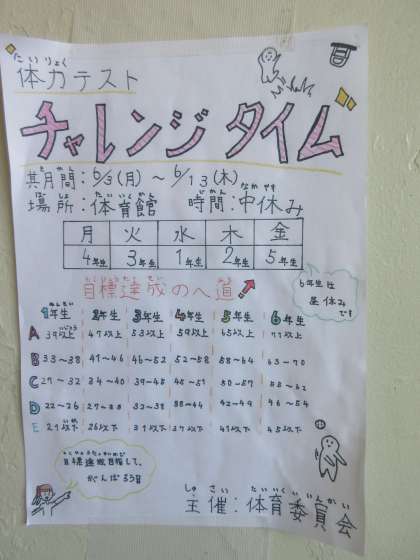 たいりょく
体力テスト
チャレンジタイム
きかん
其月間:6/3(月)～6/13(木)
ばしょ たいいくかん じかん なかやす
場所:体育館 時間:中休み
月 火 水 木 金
4年生 3年生 1年生 2年生 5年生
6年生は
昼休み
です
もくひょうたっせい みち
目標達成のへ道
1年生 2年生 3年生 4年生 5年生 6年生
A 39以上 47以上 53以上 59以上 65以上 71以上
B 33～38 41～46 46～52 52～58 58～64 63～70
C 27～32 34～40 39～45 45～51 50～57 55～62
D 22～26 27～33 32～38 38～44 42～49 46～54
E 21以下 26以下 31以下 37以下 41以下 45以下
目標達成目指して、
がんばろう!!
しゅさい たいいくいいんかい
主催:体育委員会